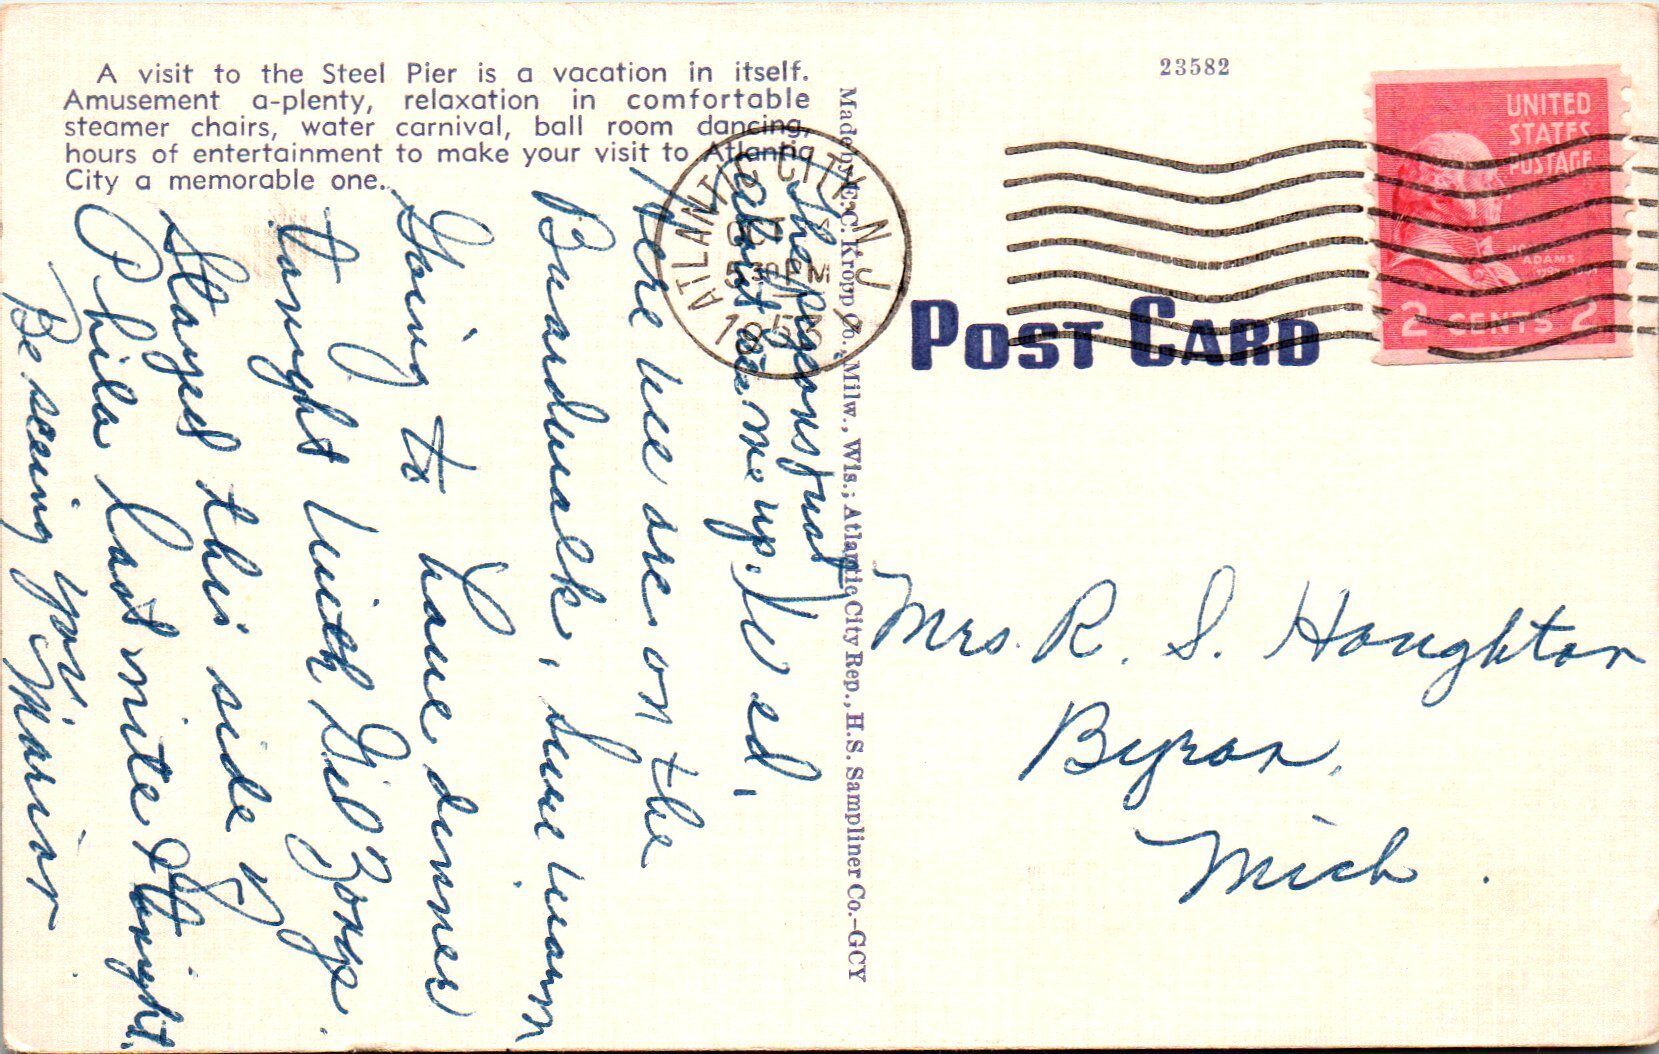 A visit to the Steel Pier is a vacation in itself.
Amusement a-plenty, relaxation in comfortable
steamer chairs, water carnival, ball room dancing,
hours of entertainment to make your visit to Atlantic
City a memorable one.
23582
UNITED
STATES
POSTAGE
ADAMS
2 CENTS 2
ATLANTIC CITY, N. J.
POST CARD
Made by E. C. Kropp Co., Milw., Wis.; Atlantic City Rep., H. S. Sampliner Co.-GCY
The pigeons just
me up. Wed,
Here we are on the
Boardwalk, sure warm
Going to have dinner
tonight with
Stayed this side of
Phila last nite & tonight.
Be seeing you
Marion
Mrs. R. S. Houghton
Byron,
Mich.